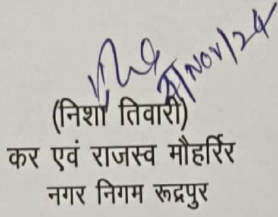 21/Nov/24
(निशा तिवारी)
कर एवं राजस्व मौहर्रिर
नगर निगम रूद्रपुर